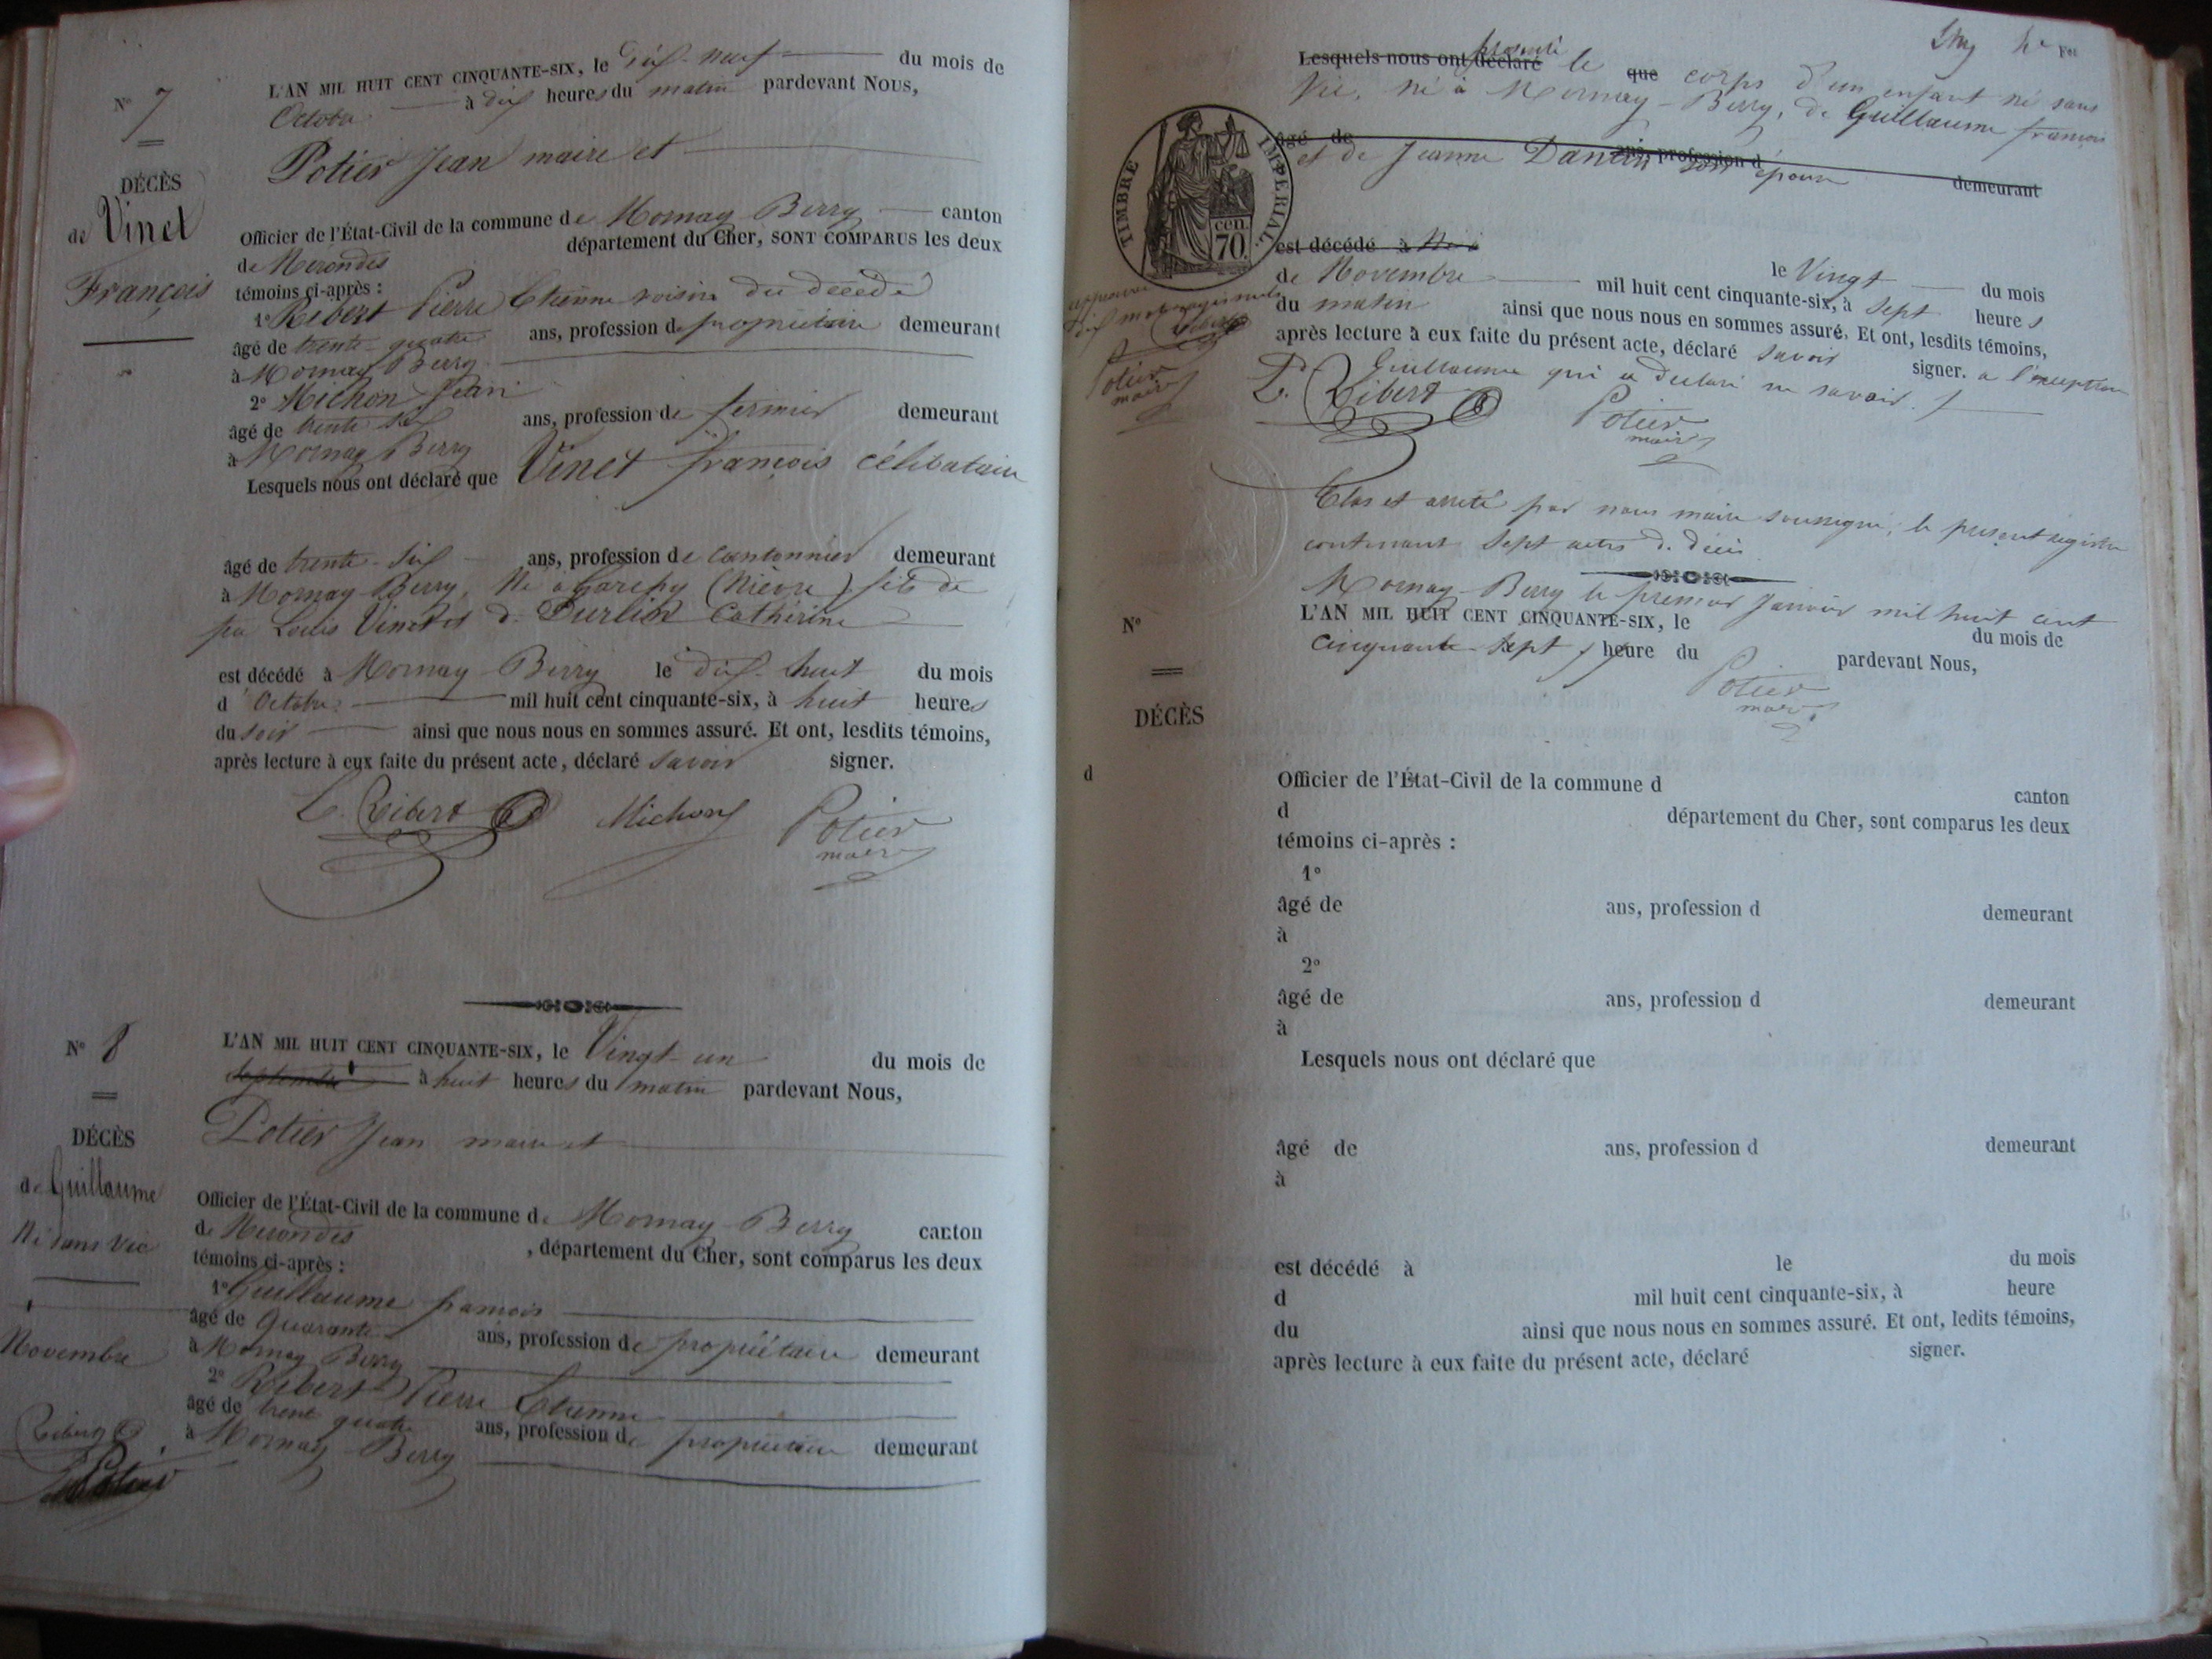 N° 7
DÉCÈS
de Vinet
François
L'AN MIL HUIT CENT CINQUANTE-SIX, le dix-neuf du mois de
Octobre à dix heures du matin pardevant Nous,
Potier Jean maire et
Officier de l'État-Civil de la commune de Mornay-Berry canton
de Nerondes département du Cher, SONT COMPARUS les deux
témoins ci-après :
1° Ribert Pierre Etienne voisin du decedé
âgé de trente-quatre ans, profession de propriétaire demeurant
à Mornay Berry
2° Michon Jean
âgé de trente six ans, profession de fermier demeurant
à Mornay Berry
Lesquels nous ont déclaré que Vinet françois célibataire
âgé de trente-six ans, profession de cantonnier demeurant
à Mornay-Berry, Né à Garchy (Nièvre) fils de
Louis Vinet et de Durlin Catherine
est décédé à Mornay Berry le dix-huit du mois
d'Octobre mil huit cent cinquante-six, à huit heures
du soir ainsi que nous nous en sommes assuré. Et ont, lesdits témoins,
après lecture à eux faite du présent acte, déclaré savoir signer.
Ribert Michon Potier
maire
N° 8
DÉCÈS
de Guillaume
Né sans vie
Novembre
Ribert
Potier
L'AN MIL HUIT CENT CINQUANTE-SIX, le Vingt-un du mois de
Septembre à huit heures du matin pardevant Nous,
Potier Jean maire et
Officier de l'État-Civil de la commune de Mornay-Berry canton
de Nerondes, département du Cher, sont comparus les deux
témoins ci-après :
1° Guillaume francois
âgé de Quarante ans, profession de propriétaire demeurant
à Mornay Berry
2° Ribert Pierre Etienne
âgé de trente quatre ans, profession de propriétaire demeurant
à Mornay-Berry
Fol
Lesquels nous ont déclaré présenté le que corps d'un enfant né sans
Vie, né à Mornay-Berry, de Guillaume françois
âgé de ans, profession d demeurant
et de Jeanne Dantin son épouse
TIMBRE IMPERIAL.
70. cen
est décédé à
le Vingt du mois
de Novembre mil huit cent cinquante-six, à sept heures
du matin ainsi que nous nous en sommes assuré. Et ont, lesdits témoins,
après lecture à eux faite du présent acte, déclaré savoir signer. a l'exception
Guillaume qui a declaré ne savoir.
Ribert Potier
maire
Potier
maire
Clos et arreté par nous maire soussigné, le present registre
contenant Sept actes de décès
Mornay-Berry le premier Janvier mil huit cent
cinquante-sept
Potier
maire
N°
DÉCÈS
d
L'AN MIL HUIT CENT CINQUANTE-SIX, le du mois de
heure du pardevant Nous,
Officier de l'État-Civil de la commune d canton
d département du Cher, sont comparus les deux
témoins ci-après :
1°
âgé de ans, profession d demeurant
à
2°
âgé de ans, profession d demeurant
à
Lesquels nous ont déclaré que
âgé de ans, profession d demeurant
à
est décédé à le du mois
d mil huit cent cinquante-six, à heure
du ainsi que nous nous en sommes assuré. Et ont, ledits témoins,
après lecture à eux faite du présent acte, déclaré signer.